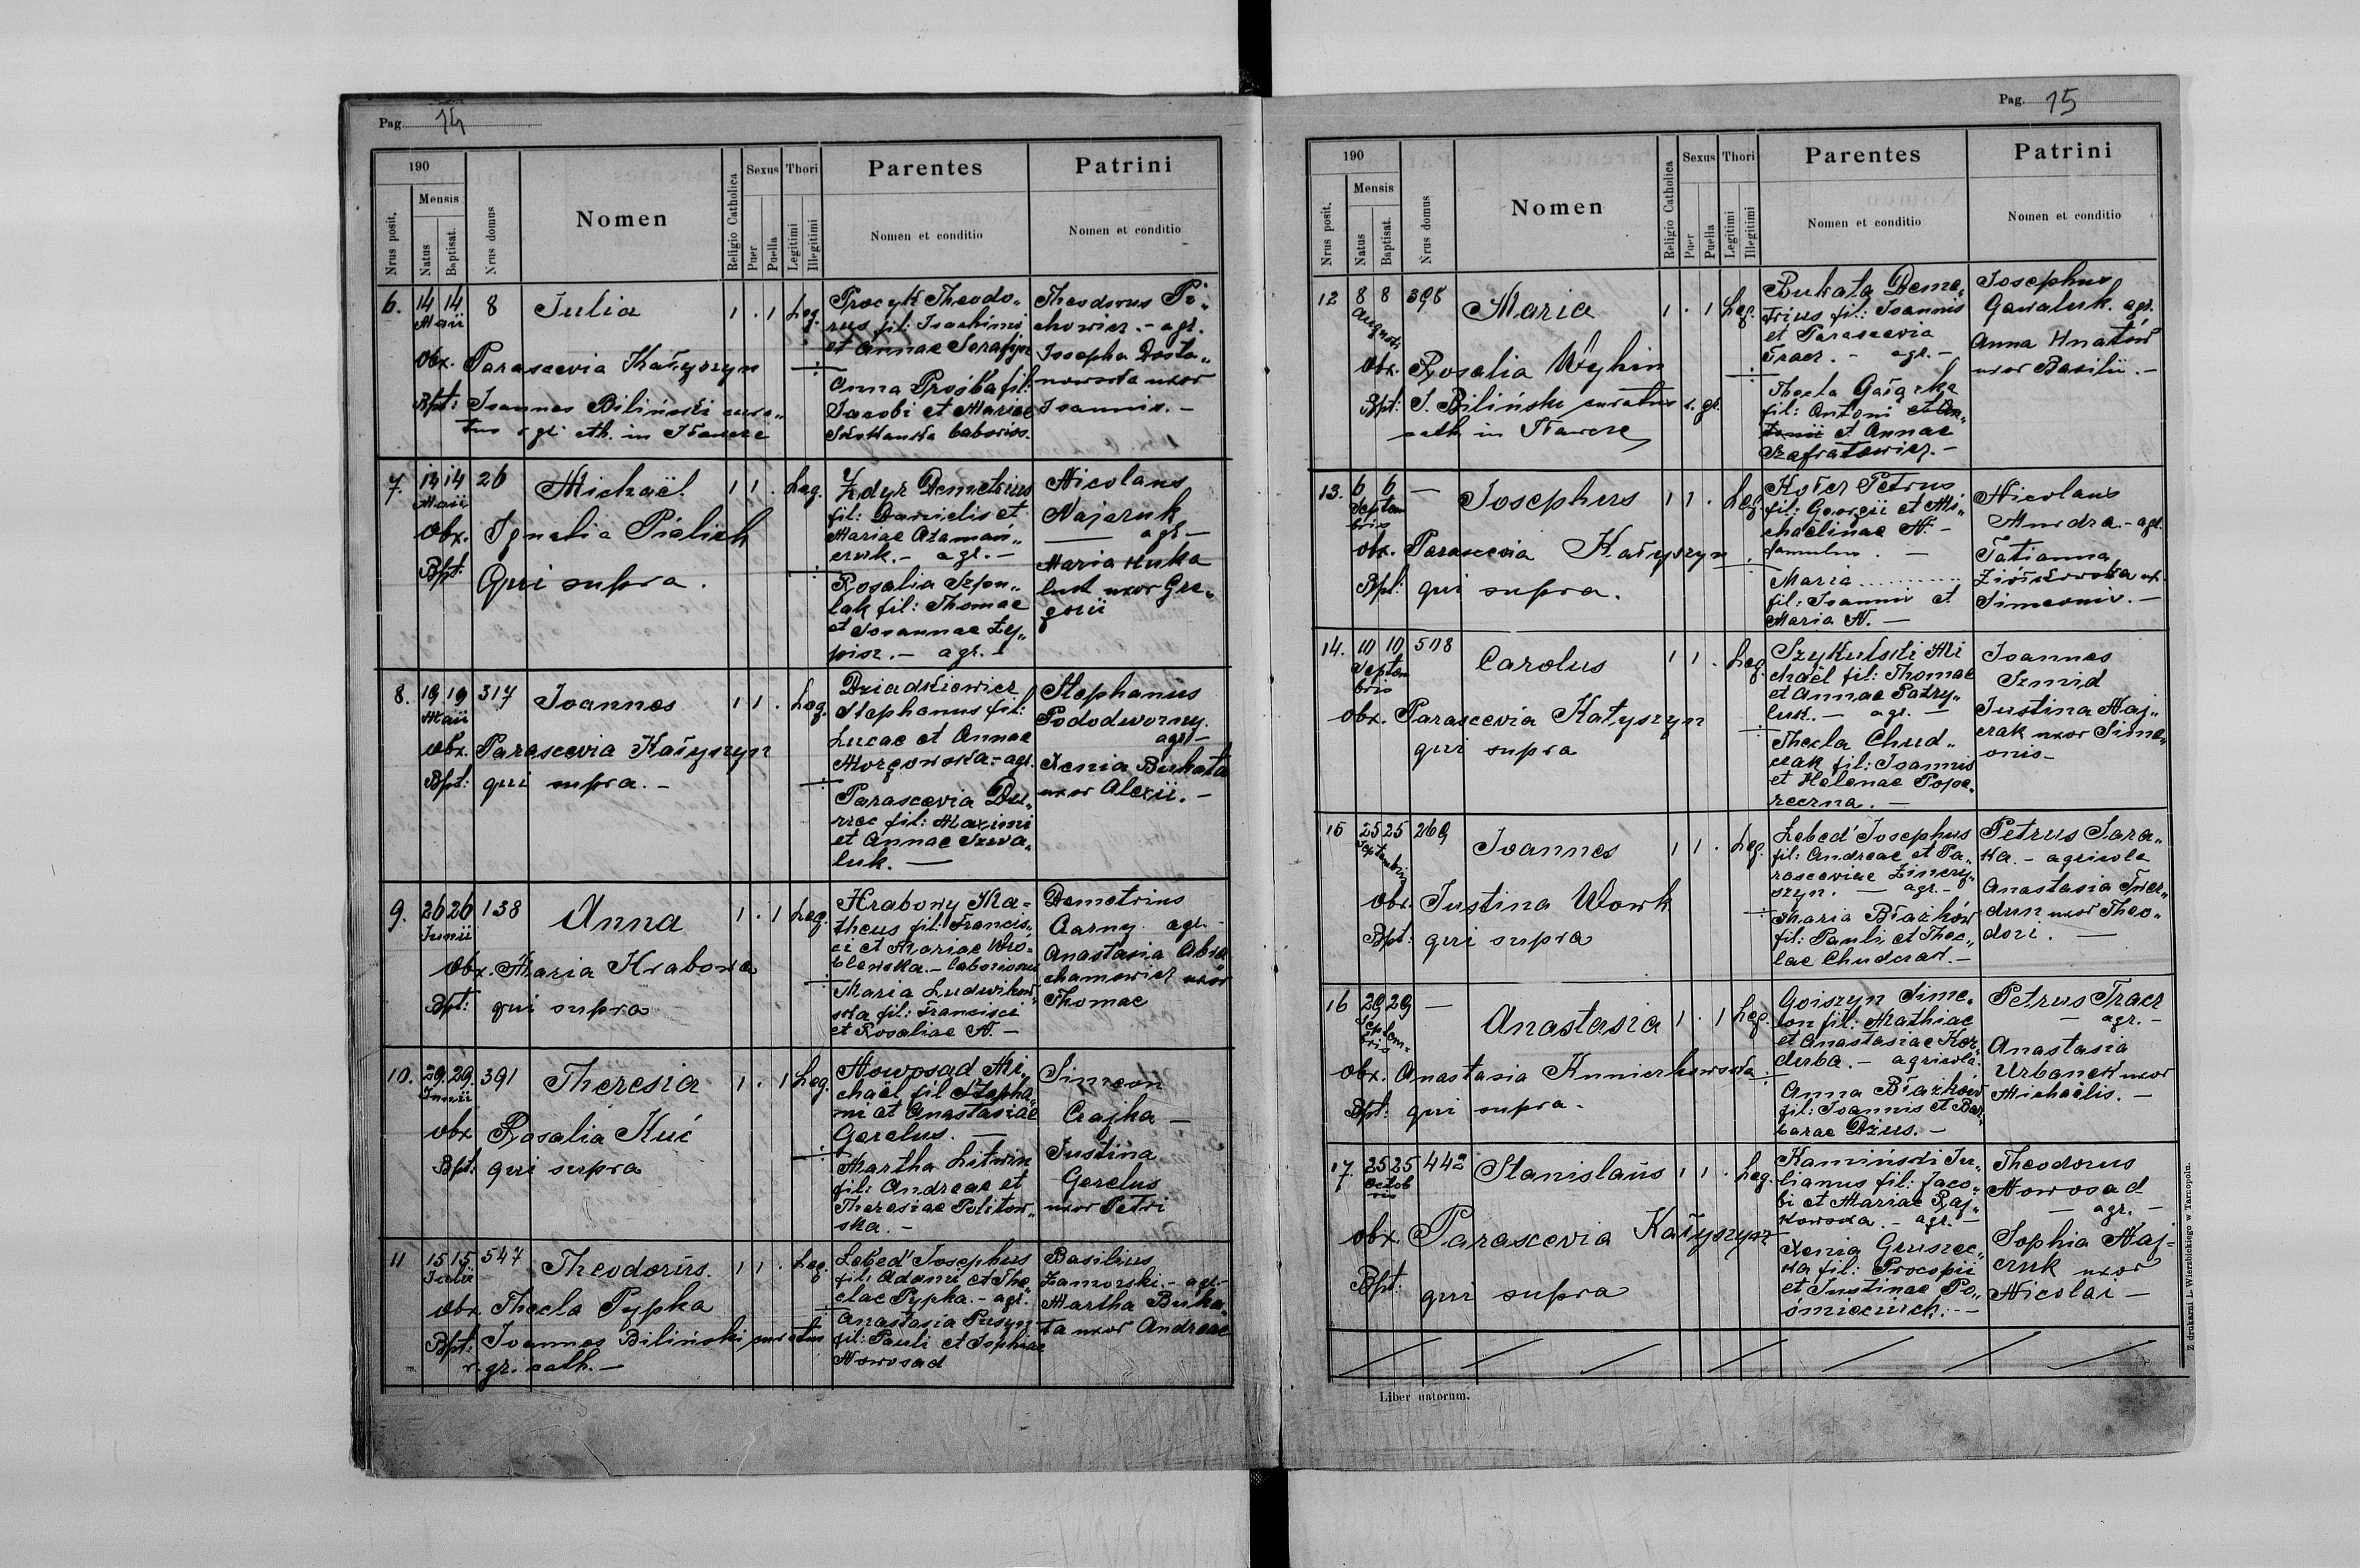 Pag. 14
190
Nrus posit.
Mensis
Natus
Baptisat.
Nrus domus
Nomen
Religio Catholica
Sexus
Puer
Puella
Thori
Legitimi
Illegitimi
Parentes
Nomen et conditio
Patrini
Nomen et conditio
6. 14 14 Maii 8 Julia 1 . 1 Leg.
obx. Parascevia Kałyszyn
Bpt: Joannes Biliński cura„
tus r. gr. cth. in
Procyk Theodo„
rus fil: Joachimi
et Annae Serafyn
Anna Prośba fil:
Jacobi et Mariae
laborios.
Theodorus Pi„
chowicz. - agr.
Josepha Dosta„
nowska uxor
Joannis. -
7. 13 14 Maii 26 Michaël 1 1 . Leg.
obx. Ignatia Pielich
Bpt: Qui supra.
Żdyr Demetrius
fil: Danielis et
Mariae Ataman„
czuk. - agr. -
Rosalia Szpu„
lak fil: Thomae
et Joannae Ły„
pisz. - agr. -
Nicolaus
Najczuk
— agr —
Maria Huka
lust uxor Gre„
gorii
8. 19 19 Maii 317 Joannes 1 1 . Leg.
obx. Parascevia Kałyszyn
Bpt: qui supra. -
Dziadkiewicz
Stephanus fil:
Lucae et Annae
Morgowska - agr.
Parascevia Du„
rzec fil: Maximi
et Annae Szwa„
luk. —
Stephanus
Pododworny.
agr -
Xenia Bukata
uxor Alexii. -
9. 26 26 Junii 138 Anna 1 . 1 Leg.
obx. Maria Hrabowa
Bpt: qui supra
Hrabowy Ma-
theus fil: Francis„
ci et Mariae Wró-
blewska. - laboriosus
Maria Ludwikow„
ska fil: Francisci
et Rosaliae N. -
Demetrius
Czarny agr. -
Anastasia Abra„
chamowicz uxor
Thomae
10. 29. 29. Junii 391 Theresia 1 . 1 Leg.
obx Rosalia Kuć
Bpt: qui supra
Nowosad Mi„
chaël fil Stepha„
ni et Anastasiae
Gerelus. —
Martha Litwin
fil: Andreae et
Theresiae Politow„
ska. -
Simeon
Czajka —
Justina
Gerelus
uxor Petri
11 15 15 Julii 547 Theodorus. 1 1 . Leg.
obx Thecla Pypka
Bpt: Joannes Biliński curatus
r. gr. cath. —
Lebed' Josephus
fil: Adami et The„
clae Pypka. - agr.
Anastasia Pusyn
fil: Pauli et Sophiae
Nowosad
Basilius
Zamorski. - agr. -
Martha Buka„
ta uxor Andreae
Pag. 15
190
Nrus posit.
Mensis
Natus
Baptisat.
Nrus domus
Nomen
Religio Catholica
Sexus
Puer
Puella
Thori
Legitimi
Illegitimi
Parentes
Nomen et conditio
Patrini
Nomen et conditio
12 8 8 Augusti 398 Maria 1 . 1 Leg.
obx. Rosalia Wyhin
Bpt: J. Biliński curatus r. gr.
cath in
Bukata Deme„
trius fil: Joannis
et Parascevia
Tracz. - agr. -
Thecla Gałązka
fil: Antoni
et Annae
Szafratowicz. -
Josephus
Gawaluk. agr.
Anna Hnatów
uxor Basilii. -
13. 6 6 Septembris — Josephus 1 1 . Leg
obx. Parascevia Kałyszyn
Bpt: qui supra.
Kozer Petrus
fil: Georgii et Mi„
chaëlinae N. -
famulus. —
Maria..........
fil: Joannis et
Maria N. —
Nicolaus
Mudra. - agr.
Tatianna
Ziółkowska ux.
Simeonis. —
14. 10 10 Septembris 508 Carolus 1 1 . Leg.
obx. Parascevia Katyszyn
qui supra
Szykulski Mi
chaël fil: Thomae
et Annae Patry„
luk. - agr. —
Thecla Chud„
czak fil: Joannis
et Helenae Pope„
reczna. —
Joannes
Szmid
Justina Naj„
czak uxor Sime„
onis -
15 25 25 Septembris 269 Joannes 1 1 . Leg.
obx. Justina Wowk
Bpt: qui supra
Lebed' Josephus
fil: Andreae et Pa„
rasceviae Zinczy„
szyn. — agr. -
Maria Błażków
fil: Pauli et Thec„
lae Chudczak. -
Petrus Sara„
ka. - agricola
Anastasia Twer„
dun uxor Theo„
dori. —
16 29 29 Septembris — Anastasia 1 . 1 Leg.
obx. Anastasia Kunierkowska
Bpt: qui supra -
Goiszyn Sime„
on fil: Mathiae
et Anastasiae Kor„
duba. - agricola.
Anna Błażków
fil: Joannis et Bar„
barae Dżus. -
Petrus Tracz
— agr. -
Anastasia
Urbanek uxor
Michaëlis. -
17. 25 25 Octobris 442 Stanislaus 1 1 . Leg.
obx. Parascevia Kałyszyn
Bpt: qui supra
Kamiński Ju„
lianus fil: Jaco„
bi et Mariae Raj„
kowska. - agr. -
Xenia Gruszec„
ka fil: Procopii
et Justinae Po„
śmieciuch. -
Theodorus
Nowosad
— agr. -
Sophia Naj-
czuk uxor
Nicolai —
Liber natorum.
Z drukarni L. Wierzbickiego w Tarnopolu.